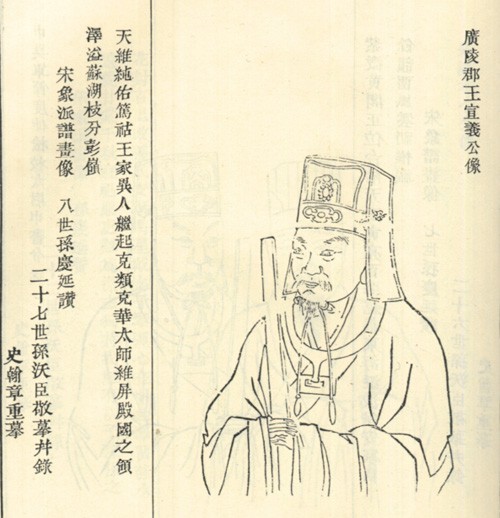 廣陵郡王宣義公像
天維純佑篤祜王家異人繼起克類克華太師維屏殿國之領
澤溢蘇湖枝分彭嶺
宋象派譜畫像　八世孫慶延讚
二十七世孫沃臣敬摹并錄
史翰章重摹